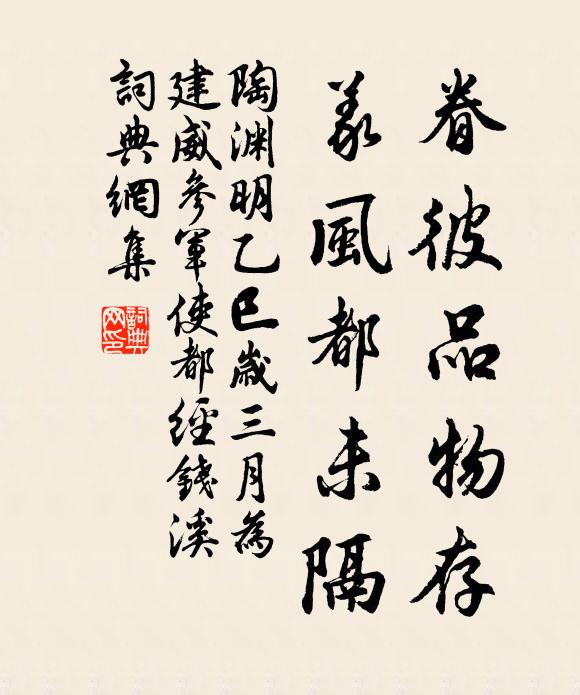 眷彼品物存
義風都未隔
陶淵明乙巳歲三月為
建威參軍使都經錢溪
詞典網集
詞典网印